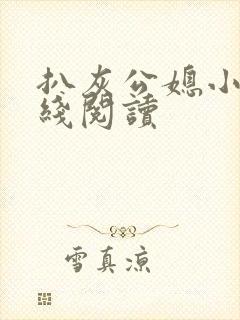 扒灰公媳小
綫閱讀
雪真涼